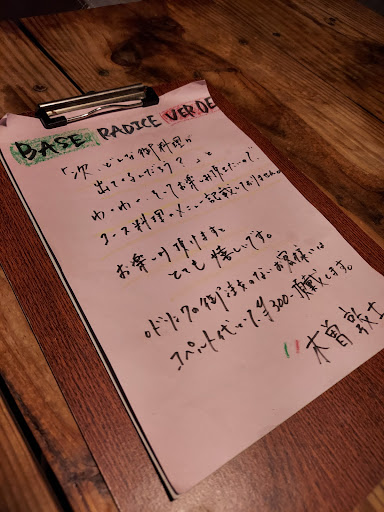 BASE RADICE VERDE
「次、どんな御料理が
出てくるんだろう？」と
わくわくして お待ち頂きたいので、
コース料理のメニュー記載しておりません。
お楽しみ頂けますと
とても嬉しいです。
○ドリンクの御注文のないお客様には
コペルト代として¥300-頂戴致します。
木曽 敦士